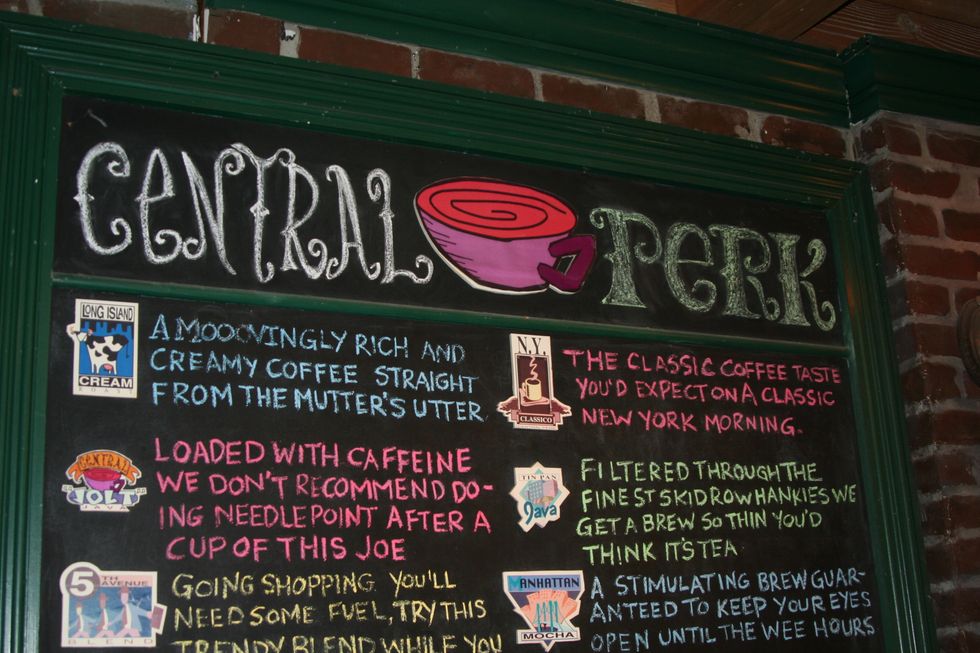 CENTRAL PERK
LONG ISLAND
CREAM
ROAST
A MOOOVINGLY RICH AND
CREAMY COFFEE STRAIGHT
FROM THE MUTTER'S UTTER
N.Y.
CLASSICO
THE CLASSIC COFFEE TASTE
YOU'D EXPECT ON A CLASSIC
NEW YORK MORNING.
CENTRAL
JOLT
JAVA
LOADED WITH CAFFEINE
WE DON'T RECOMMEND DO-
ING NEEDLEPOINT AFTER A
CUP OF THIS JOE
TIN PAN
Java
FILTERED THROUGH THE
FINEST SKID ROW HANKIES WE
GET A BREW SO THIN YOU'D
THINK IT'S TEA
5TH AVENUE
BLEND
GOING SHOPPING YOU'LL
NEED SOME FUEL, TRY THIS
TRENDY BLEND WHILE YOU
MANHATTAN
MOCHA
A STIMULATING BREW GUAR-
ANTEED TO KEEP YOUR EYES
OPEN UNTIL THE WEE HOURS